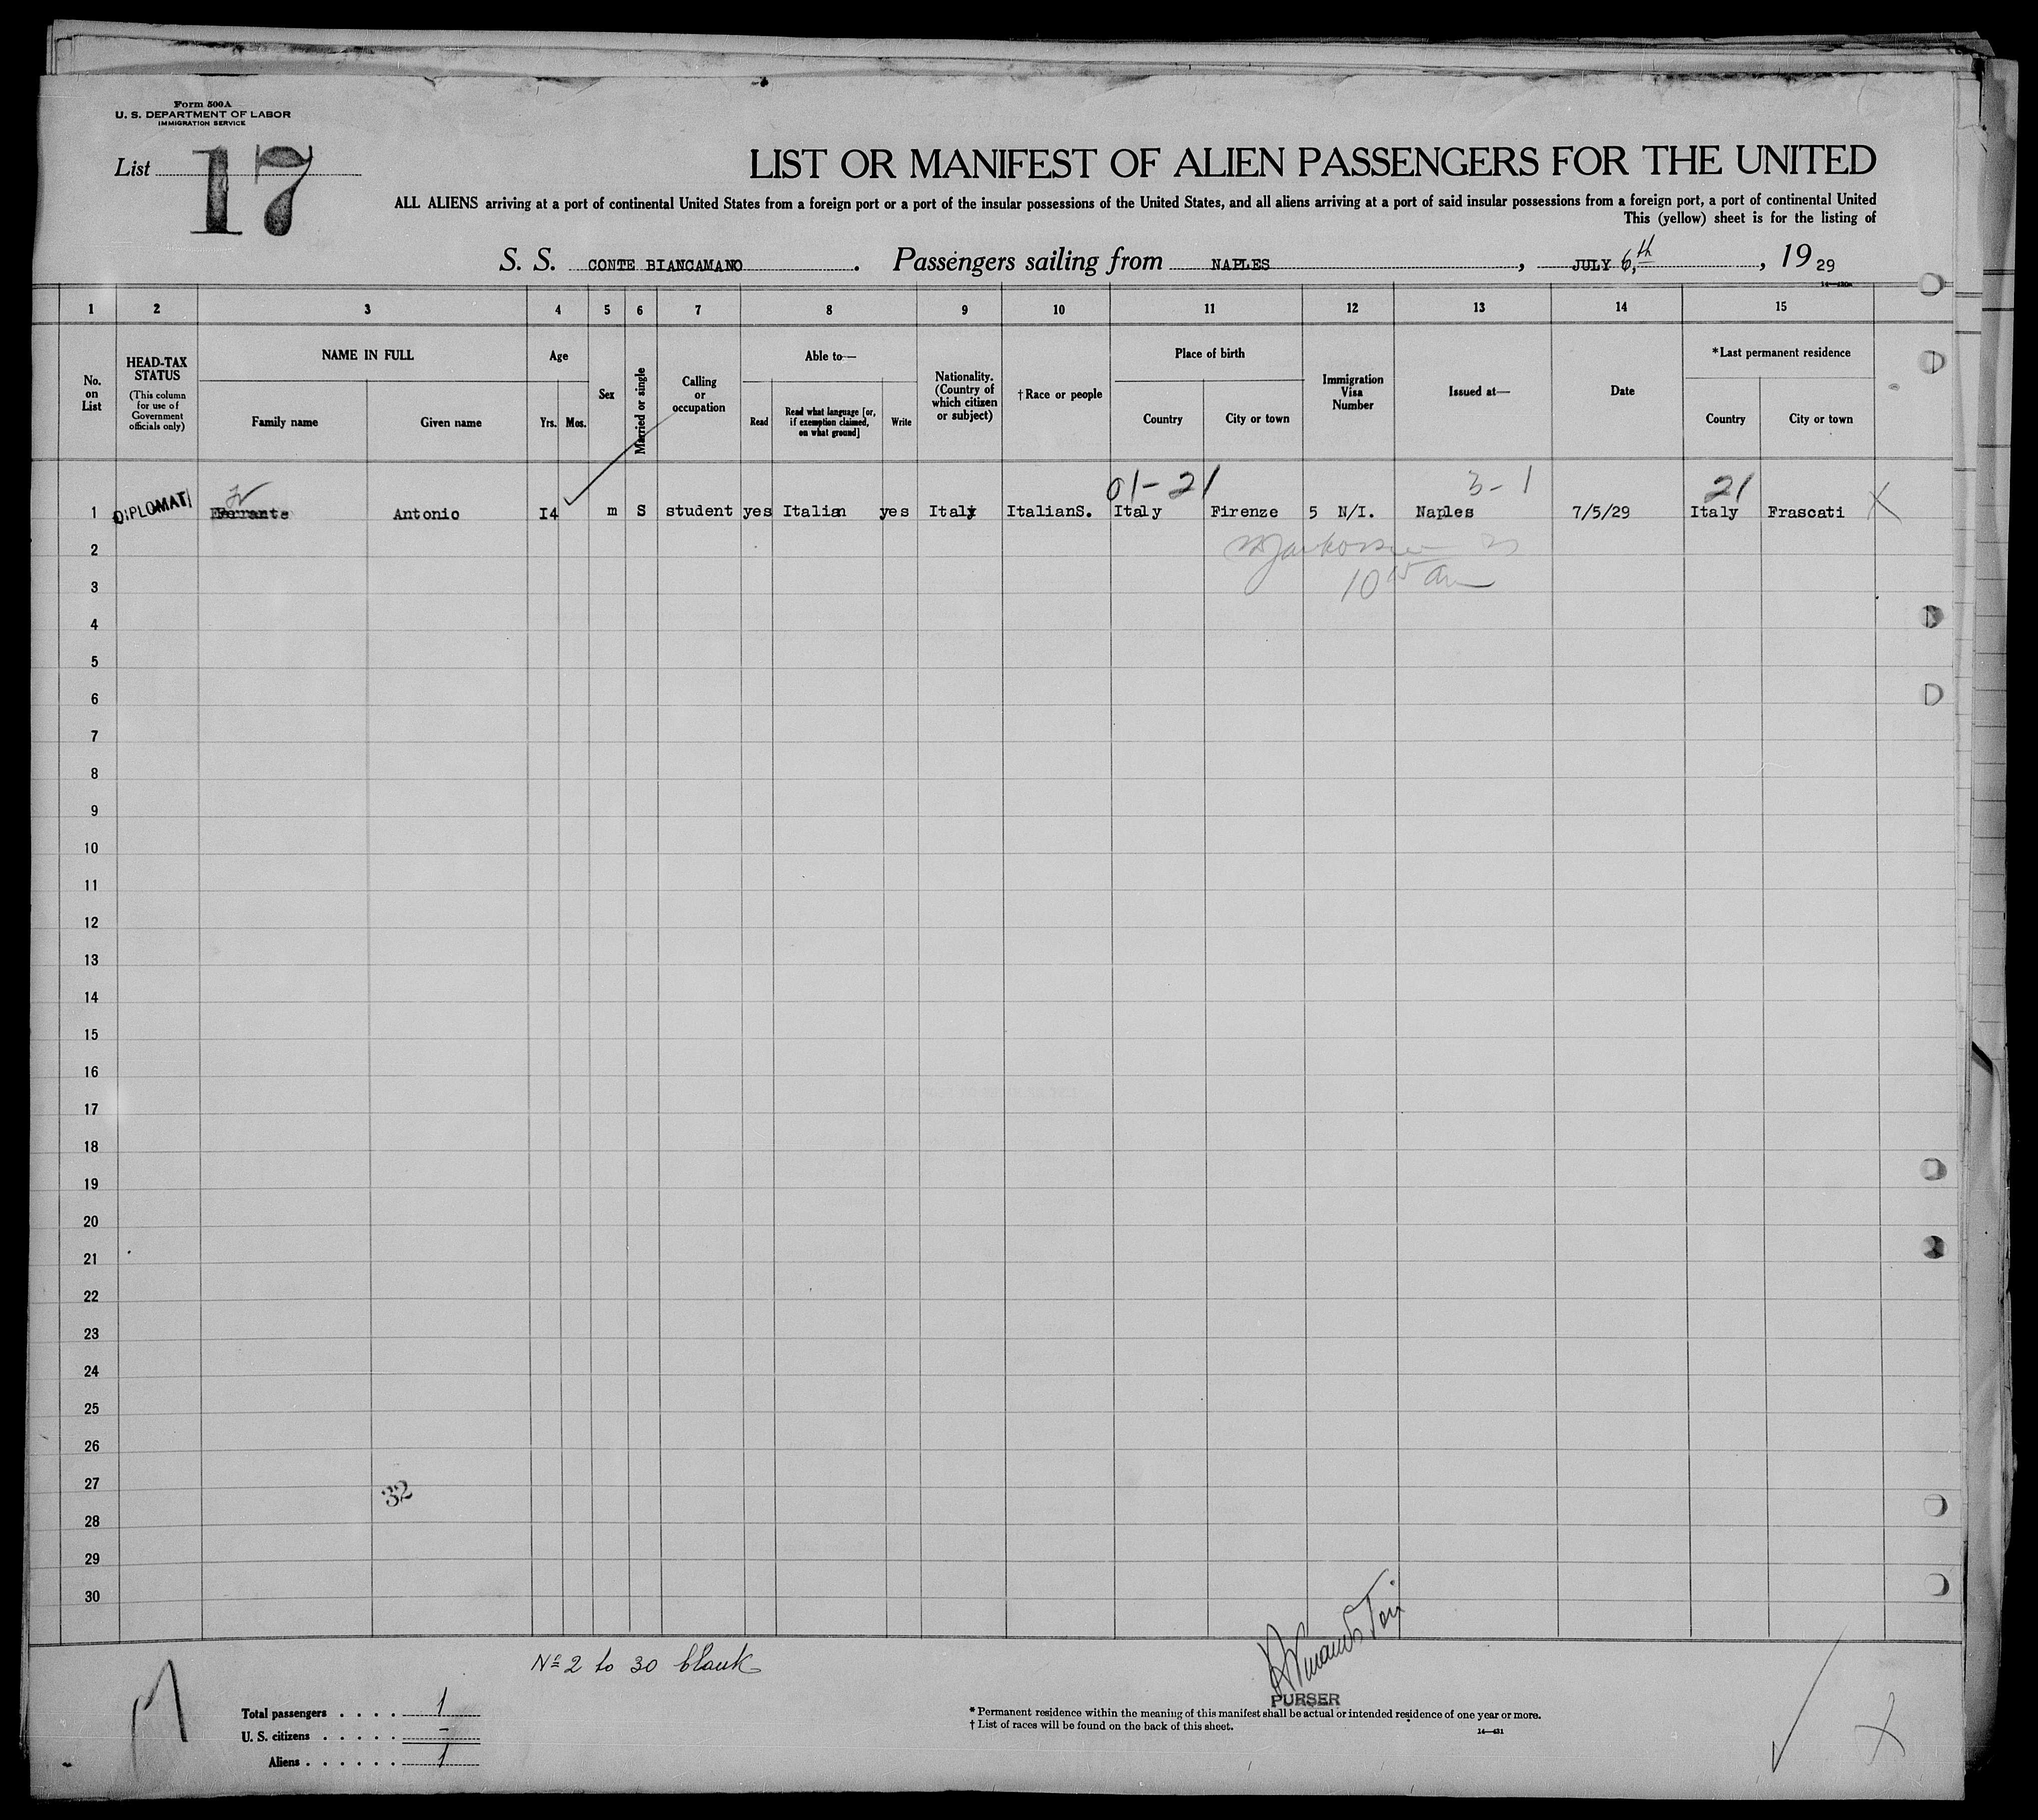 Form 500A
U. S. DEPARTMENT OF LABOR
IMMIGRATION SERVICE
List 17
LIST OR MANIFEST OF ALIEN PASSENGERS FOR THE UNITED
ALL ALIENS arriving at a port of continental United States from a foreign port or a port of the insular possessions of the United States, and all aliens arriving at a port of said insular possessions from a foreign port, a port of continental United
This (yellow) sheet is for the listing of
S. S. CONTE BIANCAMANO. Passengers sailing from NAPLES, JULY 6,th, 1929
1 2 3 4 5 6 7 8 9 10 11 12 13 14 15
No. on List
HEAD-TAX STATUS
(This column for use of Government officials only)
NAME IN FULL
Family name
Given name
Age
Yrs.
Mos.
Sex
Married or single
Calling or occupation
Able to—
Read
Read what language [or, if exemption claimed, on what ground]
Write
Nationality. (Country of which citizen or subject)
†Race or people
Place of birth
Country
City or town
Immigration Visa Number
Issued at—
Date
*Last permanent residence
Country
City or town
01-21 3-1 21
1 DIPLOMAT Ferrante Antonio I4 m S student yes Italian yes Italy ItalianS. Italy Firenze 5 N/I. Naples 7/5/29 Italy Frascati X
2
3
4
5
6
7
8
9
10
11
12
13
14
15
16
17
18
19
20
21
22
23
24
25
26
27
32
28
29
30
No 2 to 30 blank
PURSER
Total passengers . . . . 1
U. S. citizens . . . . . -
Aliens . . . . . . 1
* Permanent residence within the meaning of this manifest shall be actual or intended residence of one year or more.
† List of races will be found on the back of this sheet.
14—431
X